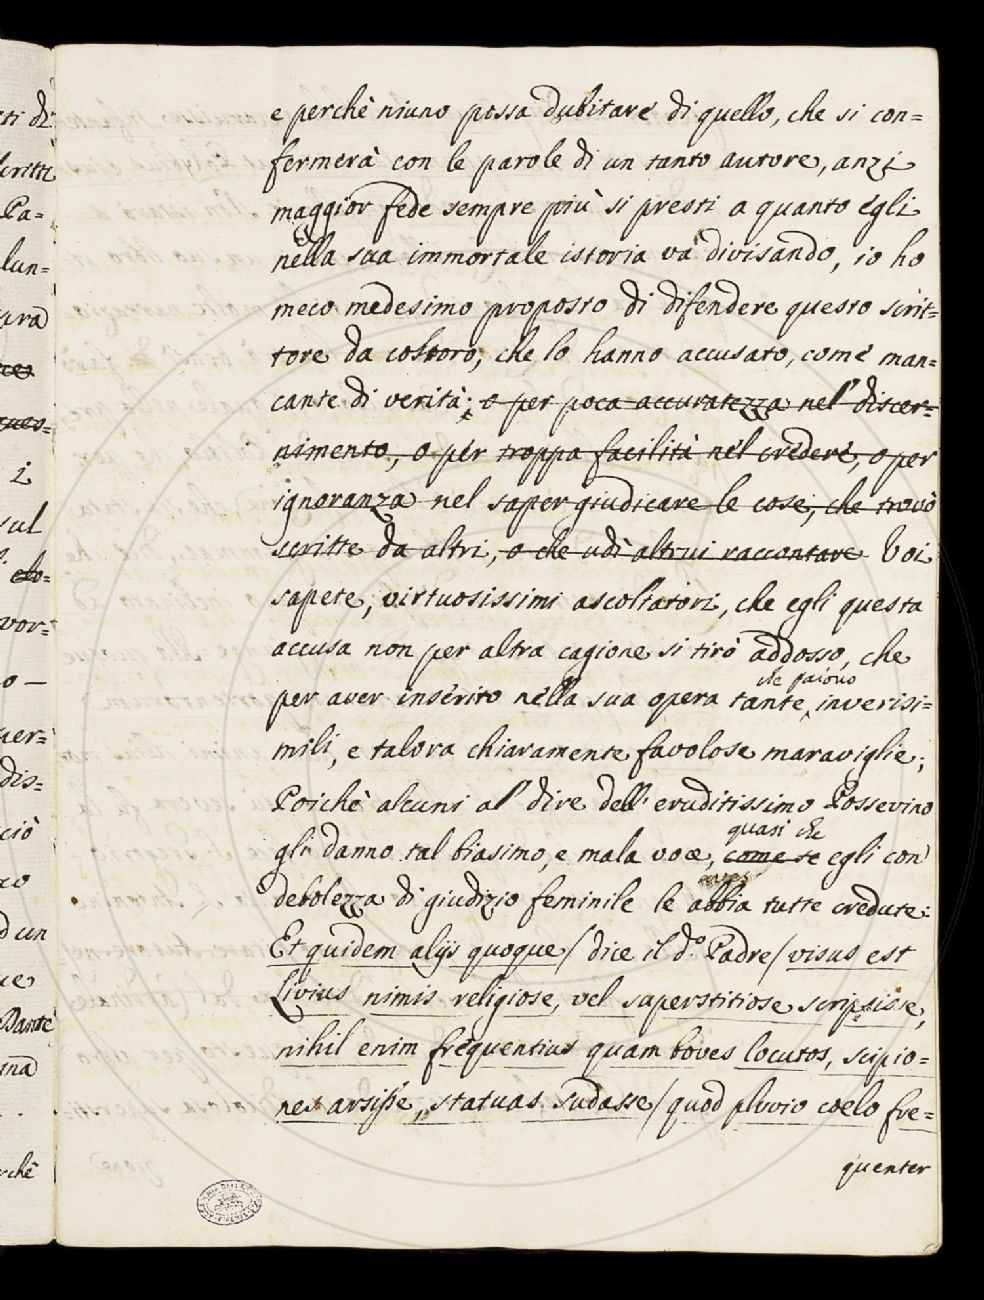 e perchè niuno possa dubitare di quello, che si con=
fermerà con le parole di un tanto autore, anzi
maggior fede sempre più si presti a quanto egli
nella sua immortale istoria va divisando, io ho
meco medesimo proposto di difendere questo scrit=
tore da costoro, che lo hanno accusato, come man=
cante di verità; o per poca accuratezza nel discer=
nimento, o per troppa facilità nel credere, o per
ignoranza nel saper giudicare le cose, che trovò
scritte da altri, o che udì altrui raccontare Voi
sapete, virtuosissimi ascoltatori, che egli questa
accusa non per altra cagione si tirò addosso, che
che paiono
per aver inserito nella sua opera tante, inverisi=
mili, e talora chiaramente favolose maraviglie;
Poichè alcuni al dire dell' eruditissimo Possevino
quasi che
gli danno tal biasimo, e mala voce, come se egli con
debolezza di giudizio feminile le abbia tutte credute:
Et quidem alijs quoque / dice il d.º Padre / visus est
Livius nimis religiose, vel superstitiose scripsisse,
nihil enim frequentius quam boves locutos, scipio=
nes arsisse, statuas sudasse / quod pluvio coelo fre=
quenter
ti di
critti
Pa=
lun=
ques=
i
sul
vor=
o —
dis=
ciò
d un
Dante
rchè